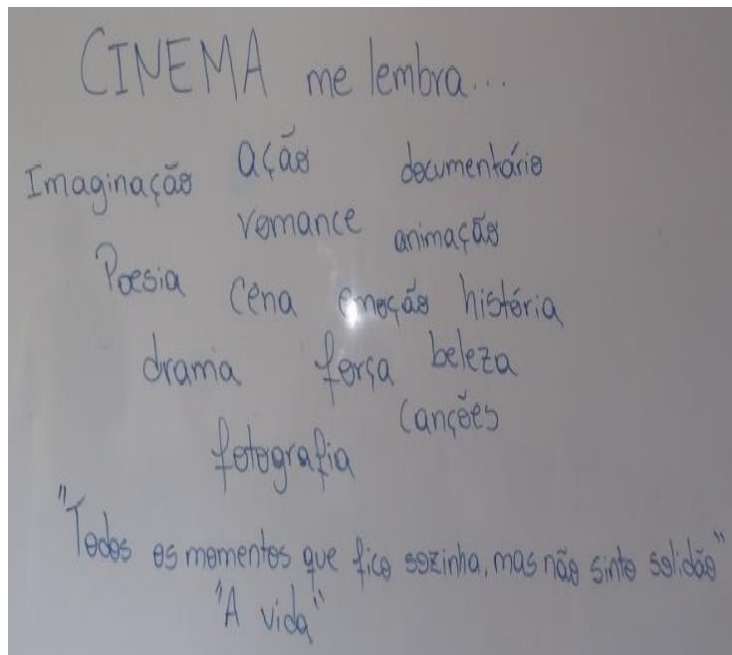 CINEMA me lembra...
Imaginação ação documentário
romance animação
Poesia cena emoção história
drama força beleza
canções
fotografia
"Todos os momentos que fico sozinha, mas não sinto solidão"
"A vida"